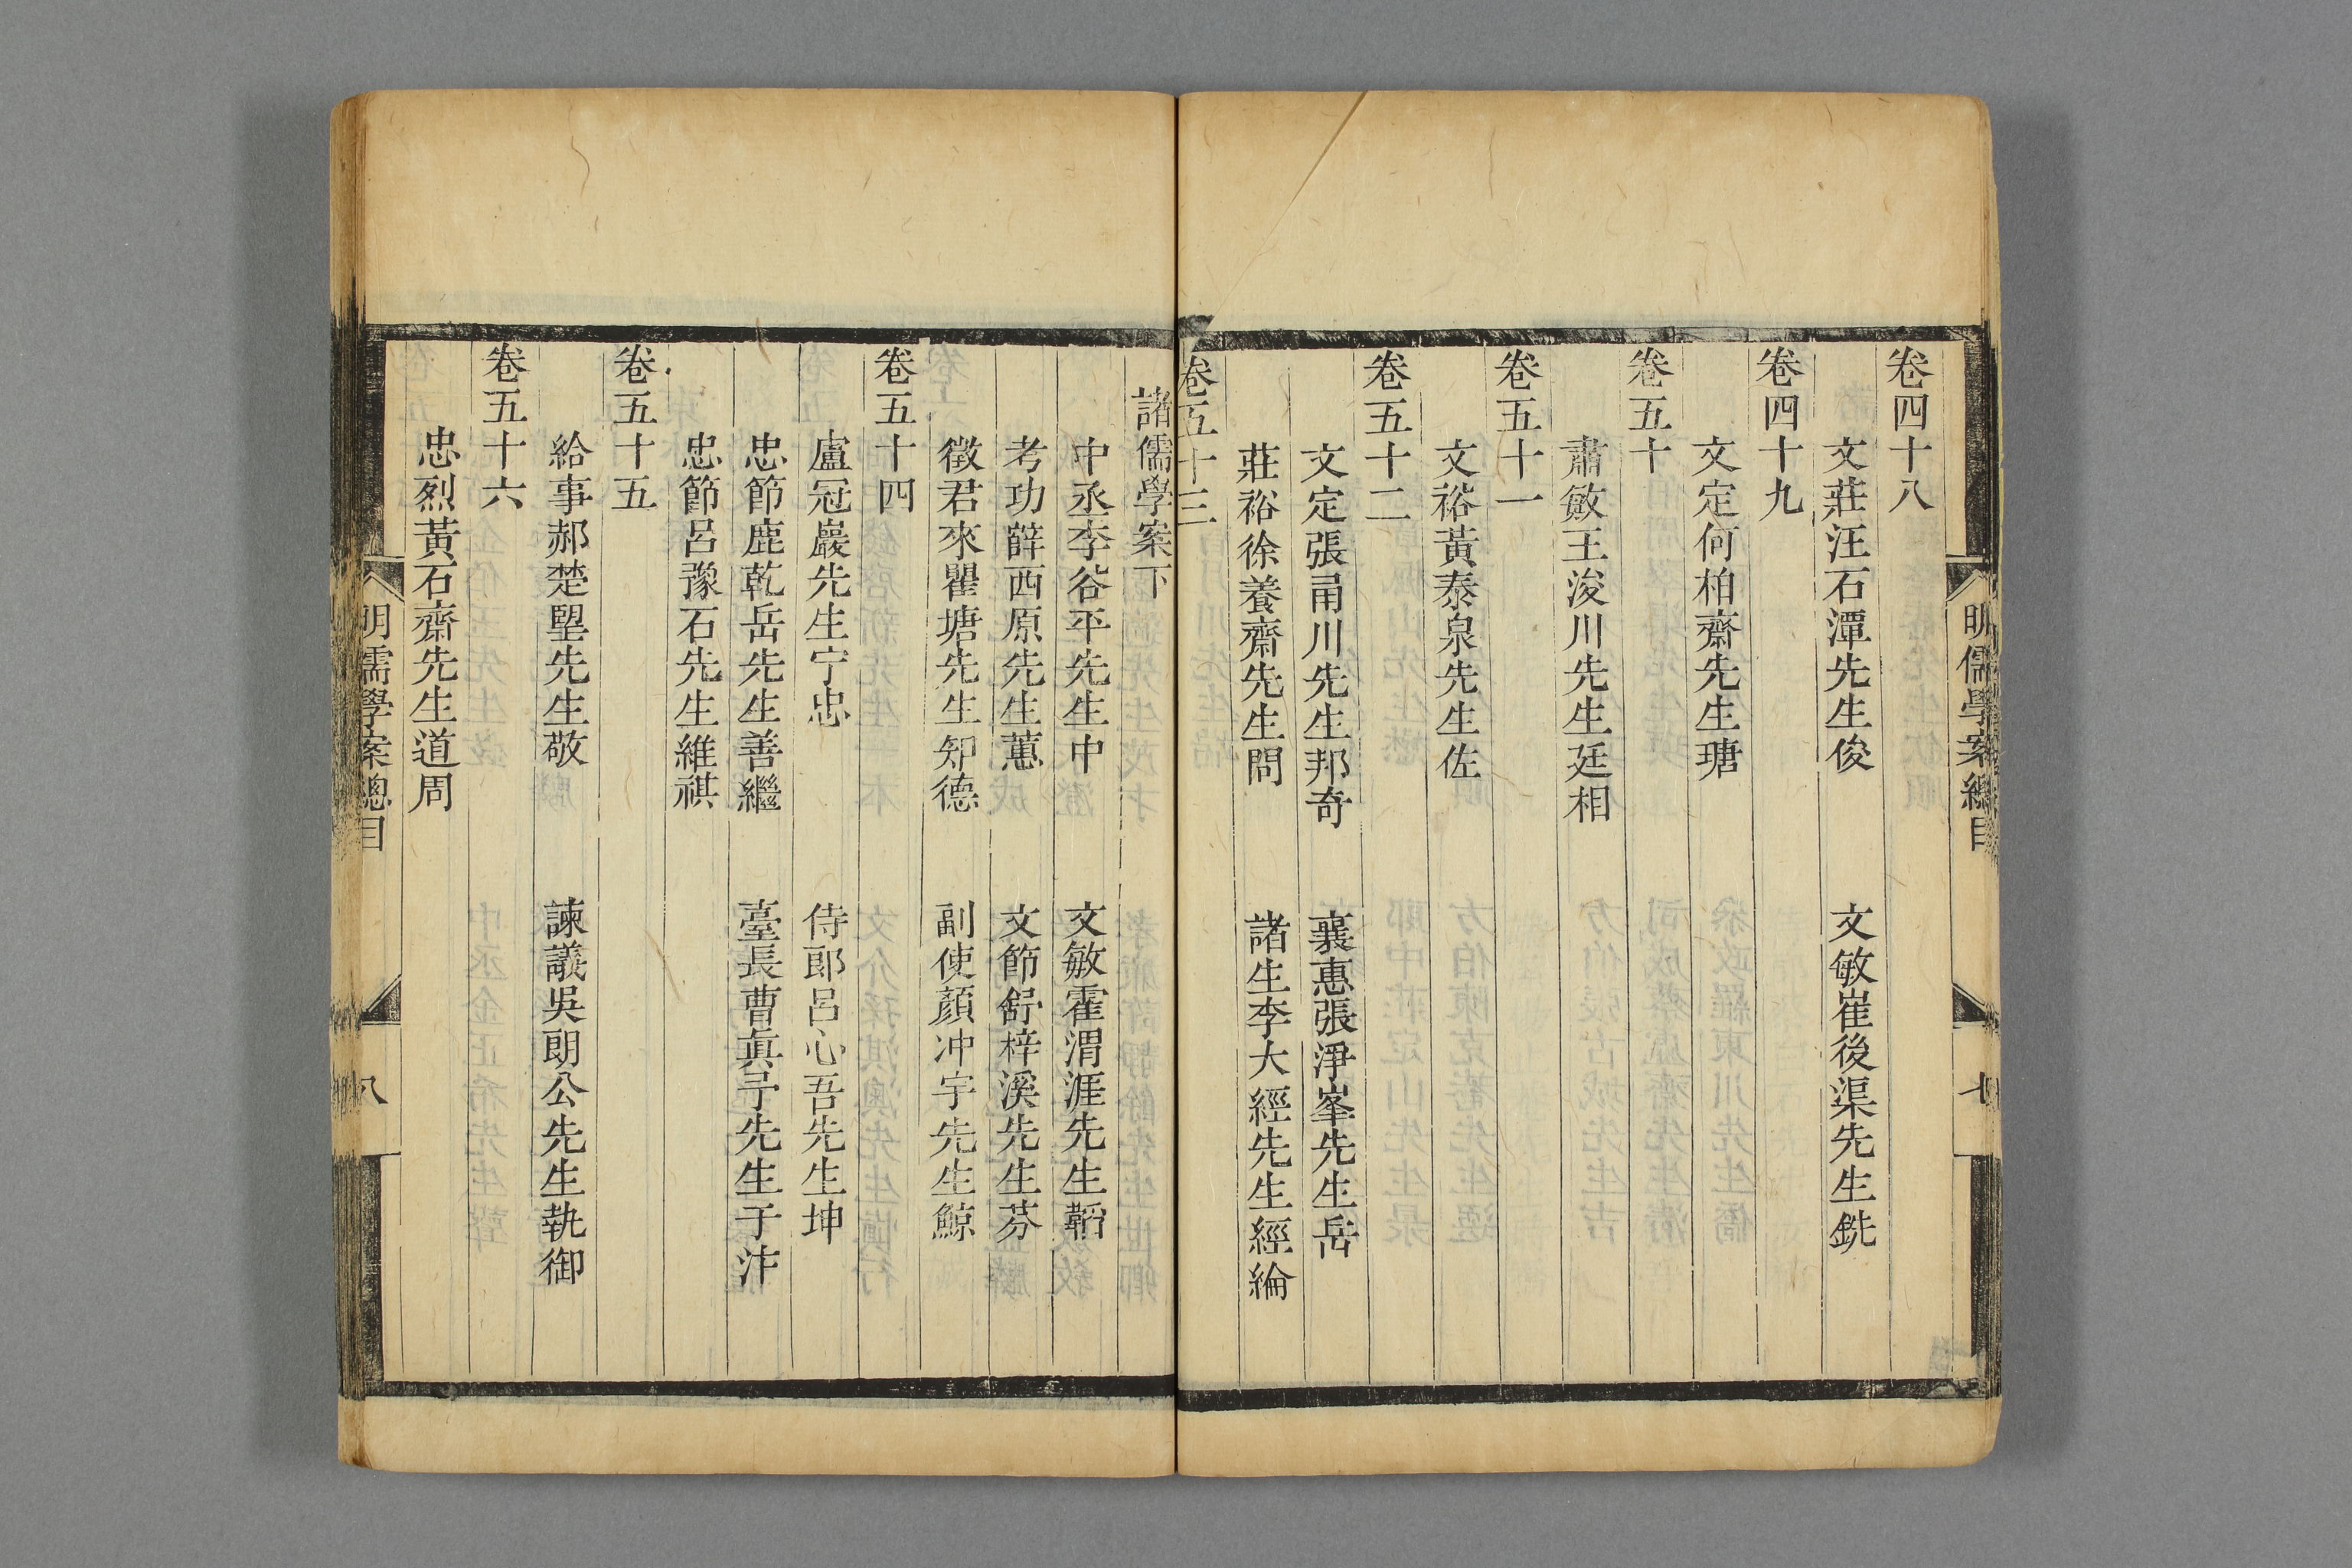 明儒學案總目
七
卷四十八
文莊汪石潭先生俊　文敏崔後渠先生銑
卷四十九
文定何柏齋先生瑭
卷五十
肅敏王浚川先生廷相
卷五十一
文裕黃泰泉先生佐
卷五十二
文定張甬川先生邦奇　襄惠張淨峯先生岳
莊裕徐養齋先生問　諸生李大經先生經綸
卷五十三
諸儒學案下
中丞李谷平先生中　文敏霍渭涯先生韜
考功薛西原先生蕙　文節舒梓溪先生芬
徵君來瞿塘先生知德　副使顏冲宇先生鯨
卷五十四
盧冠巖先生宁忠　侍郎呂心吾先生坤
忠節鹿乾岳先生善繼　臺長曹眞予先生于汴
忠節呂豫石先生維祺
卷五十五
給事郝楚朢先生敬　諫議吳朗公先生執御
卷五十六
忠烈黃石齋先生道周
明儒學案總目
八